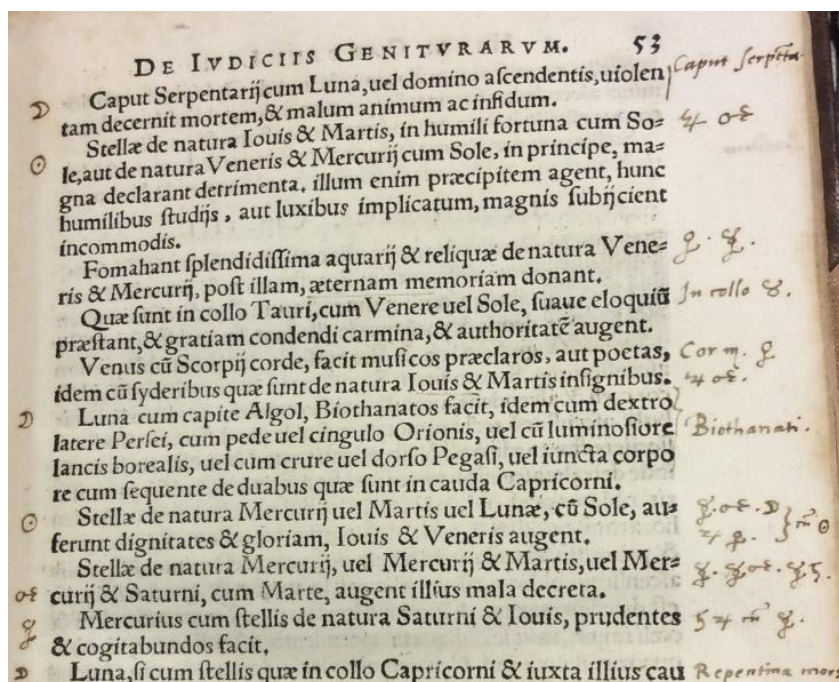 DE IVDICIIS GENITVRARVM. 53
☽ Caput Serpentarij cum Luna, uel domino ascendentis, uiolen Caput serpēta.
tam decernit mortem, & malum animum ac infidum.
Stellæ de natura Iouis & Martis, in humili fortuna cum So= ♃ ♂
☉ le, aut de natura Veneris & Mercurij cum Sole, in principe, ma=
gna declarant detrimenta. illum enim præcipitem agent, hunc
humilibus studijs, aut luxibus implicatum, magnis subijcient
incommodis.
Fomahant splendidissima aquarij & reliquæ de natura Vene= ♀. ☿.
ris & Mercurij, post illam, æternam memoriam donant.
Quæ sunt in collo Tauri, cum Venere uel Sole, suaue eloquiū In collo ♉.
præstant, & gratiam condendi carmina, & authoritatē augent.
Venus cū Scorpij corde, facit musicos præclaros, aut poetas, Cor ♏. ♀
idem cū syderibus quæ sunt de natura Iouis & Martis insignibus. ♃ ♂.
☽ Luna cum capite Algol, Biothanatos facit, idem cum dextro
latere Persei, cum pede uel cingulo Orionis, uel cū luminosiore Biothanati.
lancis borealis, uel cum crure uel dorso Pegasi, uel iuncta corpo
re cum sequente de duabus quæ sunt in cauda Capricorni.
☉ Stellæ de natura Mercurij uel Martis uel Lunæ, cū Sole, au= ☿. ♂. ☽ } cū ☉
ferunt dignitates & gloriam, Iouis & Veneris augent. ♃ ♀.
Stellæ de natura Mercurij, uel Mercurij & Martis, uel Mer= ☿. ☿♂. ☿♄.
♂ curij & Saturni, cum Marte, augent illius mala decreta.
☿ Mercurius cum stellis de natura Saturni & Iouis, prudentes ♄ ♃ cū ☿.
& cogitabundos facit.
☽ Luna, si cum stellis quæ in collo Capricorni & iuxta illius cau Repentina mors